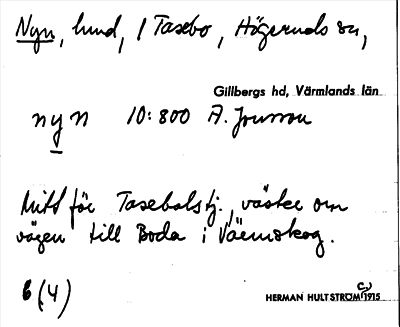 Nyn, lund, / Tasebo, Högeruds sn,
Gillbergs hd, Värmlands län
nyn 10:800 A. Jonsson
Mitt för Tasebolstj., väster om
vägen till Boda i Värmskog.
6 (4)
HERMAN HULTSTRÖM 1915